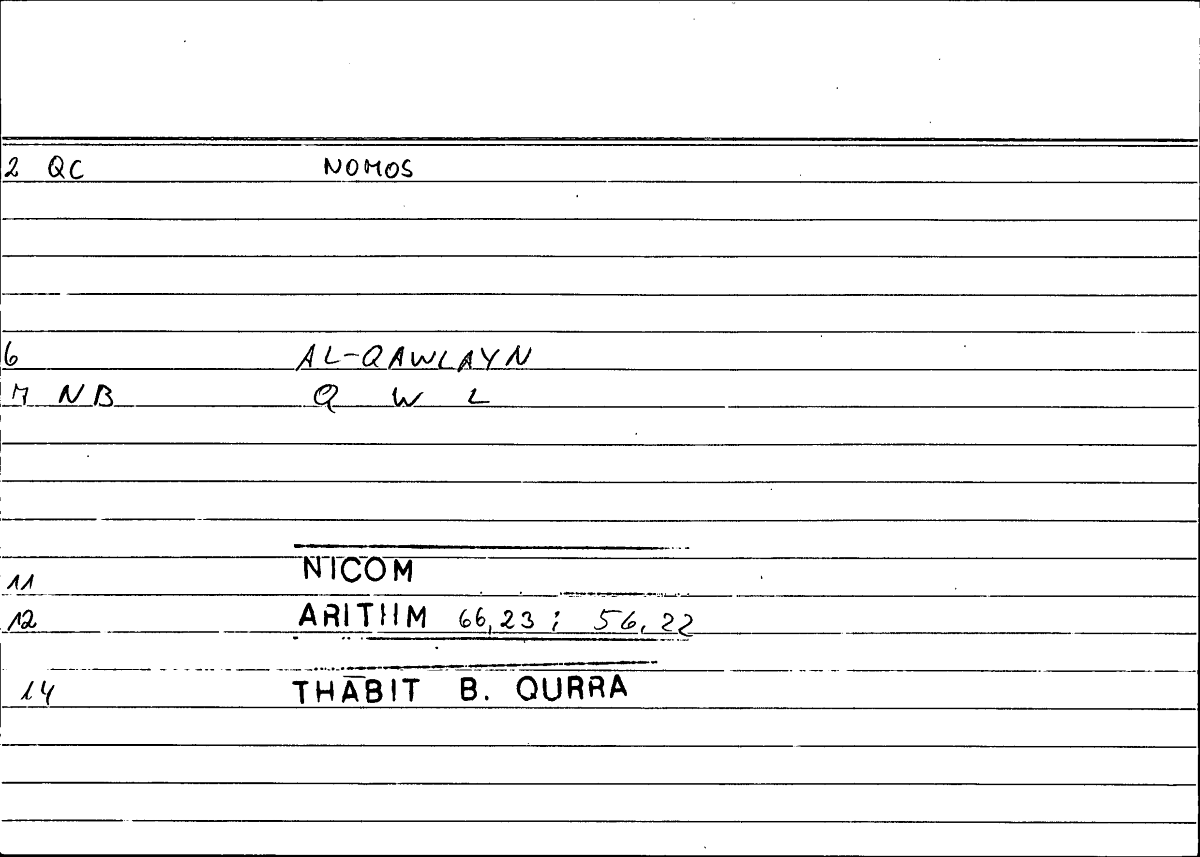 2 QC NOMOS
6 AL-QAWLAYN
7 NB Q W L
11 NICOM
12 ARITHM 66,23 ; 56,22
14 THĀBIT B. QURRA